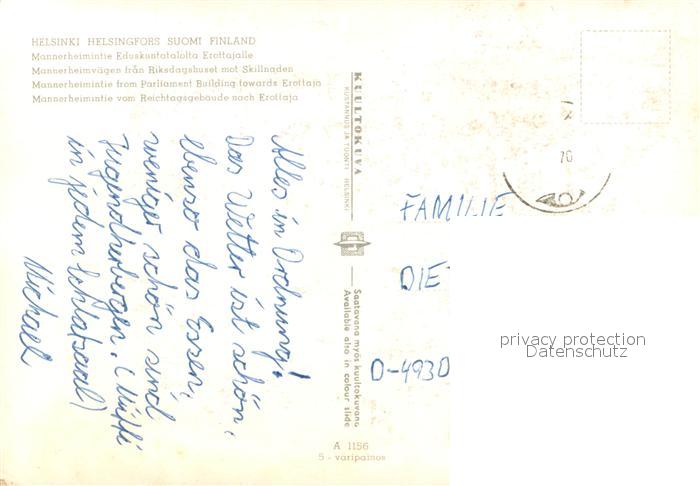 HELSINKI HELSINGFORS SUOMI FINLAND
Mannerheimintie Eduskuntatalolta Erottajalle
Mannerheimvägen från Riksdagshuset mot Skillnaden
Mannerheimintie from Parliament Building towards Erottaja
Mannerheimintie vom Reichtagsgebäude nach Erottaja
Alles in Ordnung!
Das Wetter ist schön,
ebenso das Essen,
weniger schön sind
Jugendherbergen. (Müffi
in jedem Schlafsaal)
Michael
KUULTOKUVA
KUSTANNUS JA TUONTI HELSINKI
Saatavana myös kuultokuvana
Available also in colour slide
A 1156
5 - väripainos
70
FAMILIE
DIE
D-4930
privacy protection
Datenschutz